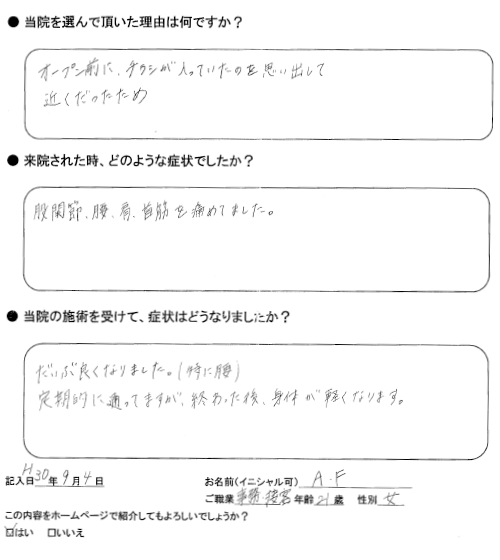 ● 当院を選んで頂いた理由は何ですか？
オープン前に、チラシが入っていたのを思い出して
近くだったため
● 来院された時、どのような症状でしたか？
股関節、腰、肩、首筋を痛めてました。
● 当院の施術を受けて、症状はどうなりましたか？
だいぶ良くなりました。(特に腰)
定期的に通ってますが、終わった後、身体が軽くなります。
記入日 H30年 9月 4日
お名前(イニシャル可) A.F
ご職業 事務 年齢 21歳 性別 女
この内容をホームページで紹介してもよろしいでしょうか？
☑はい □いいえ